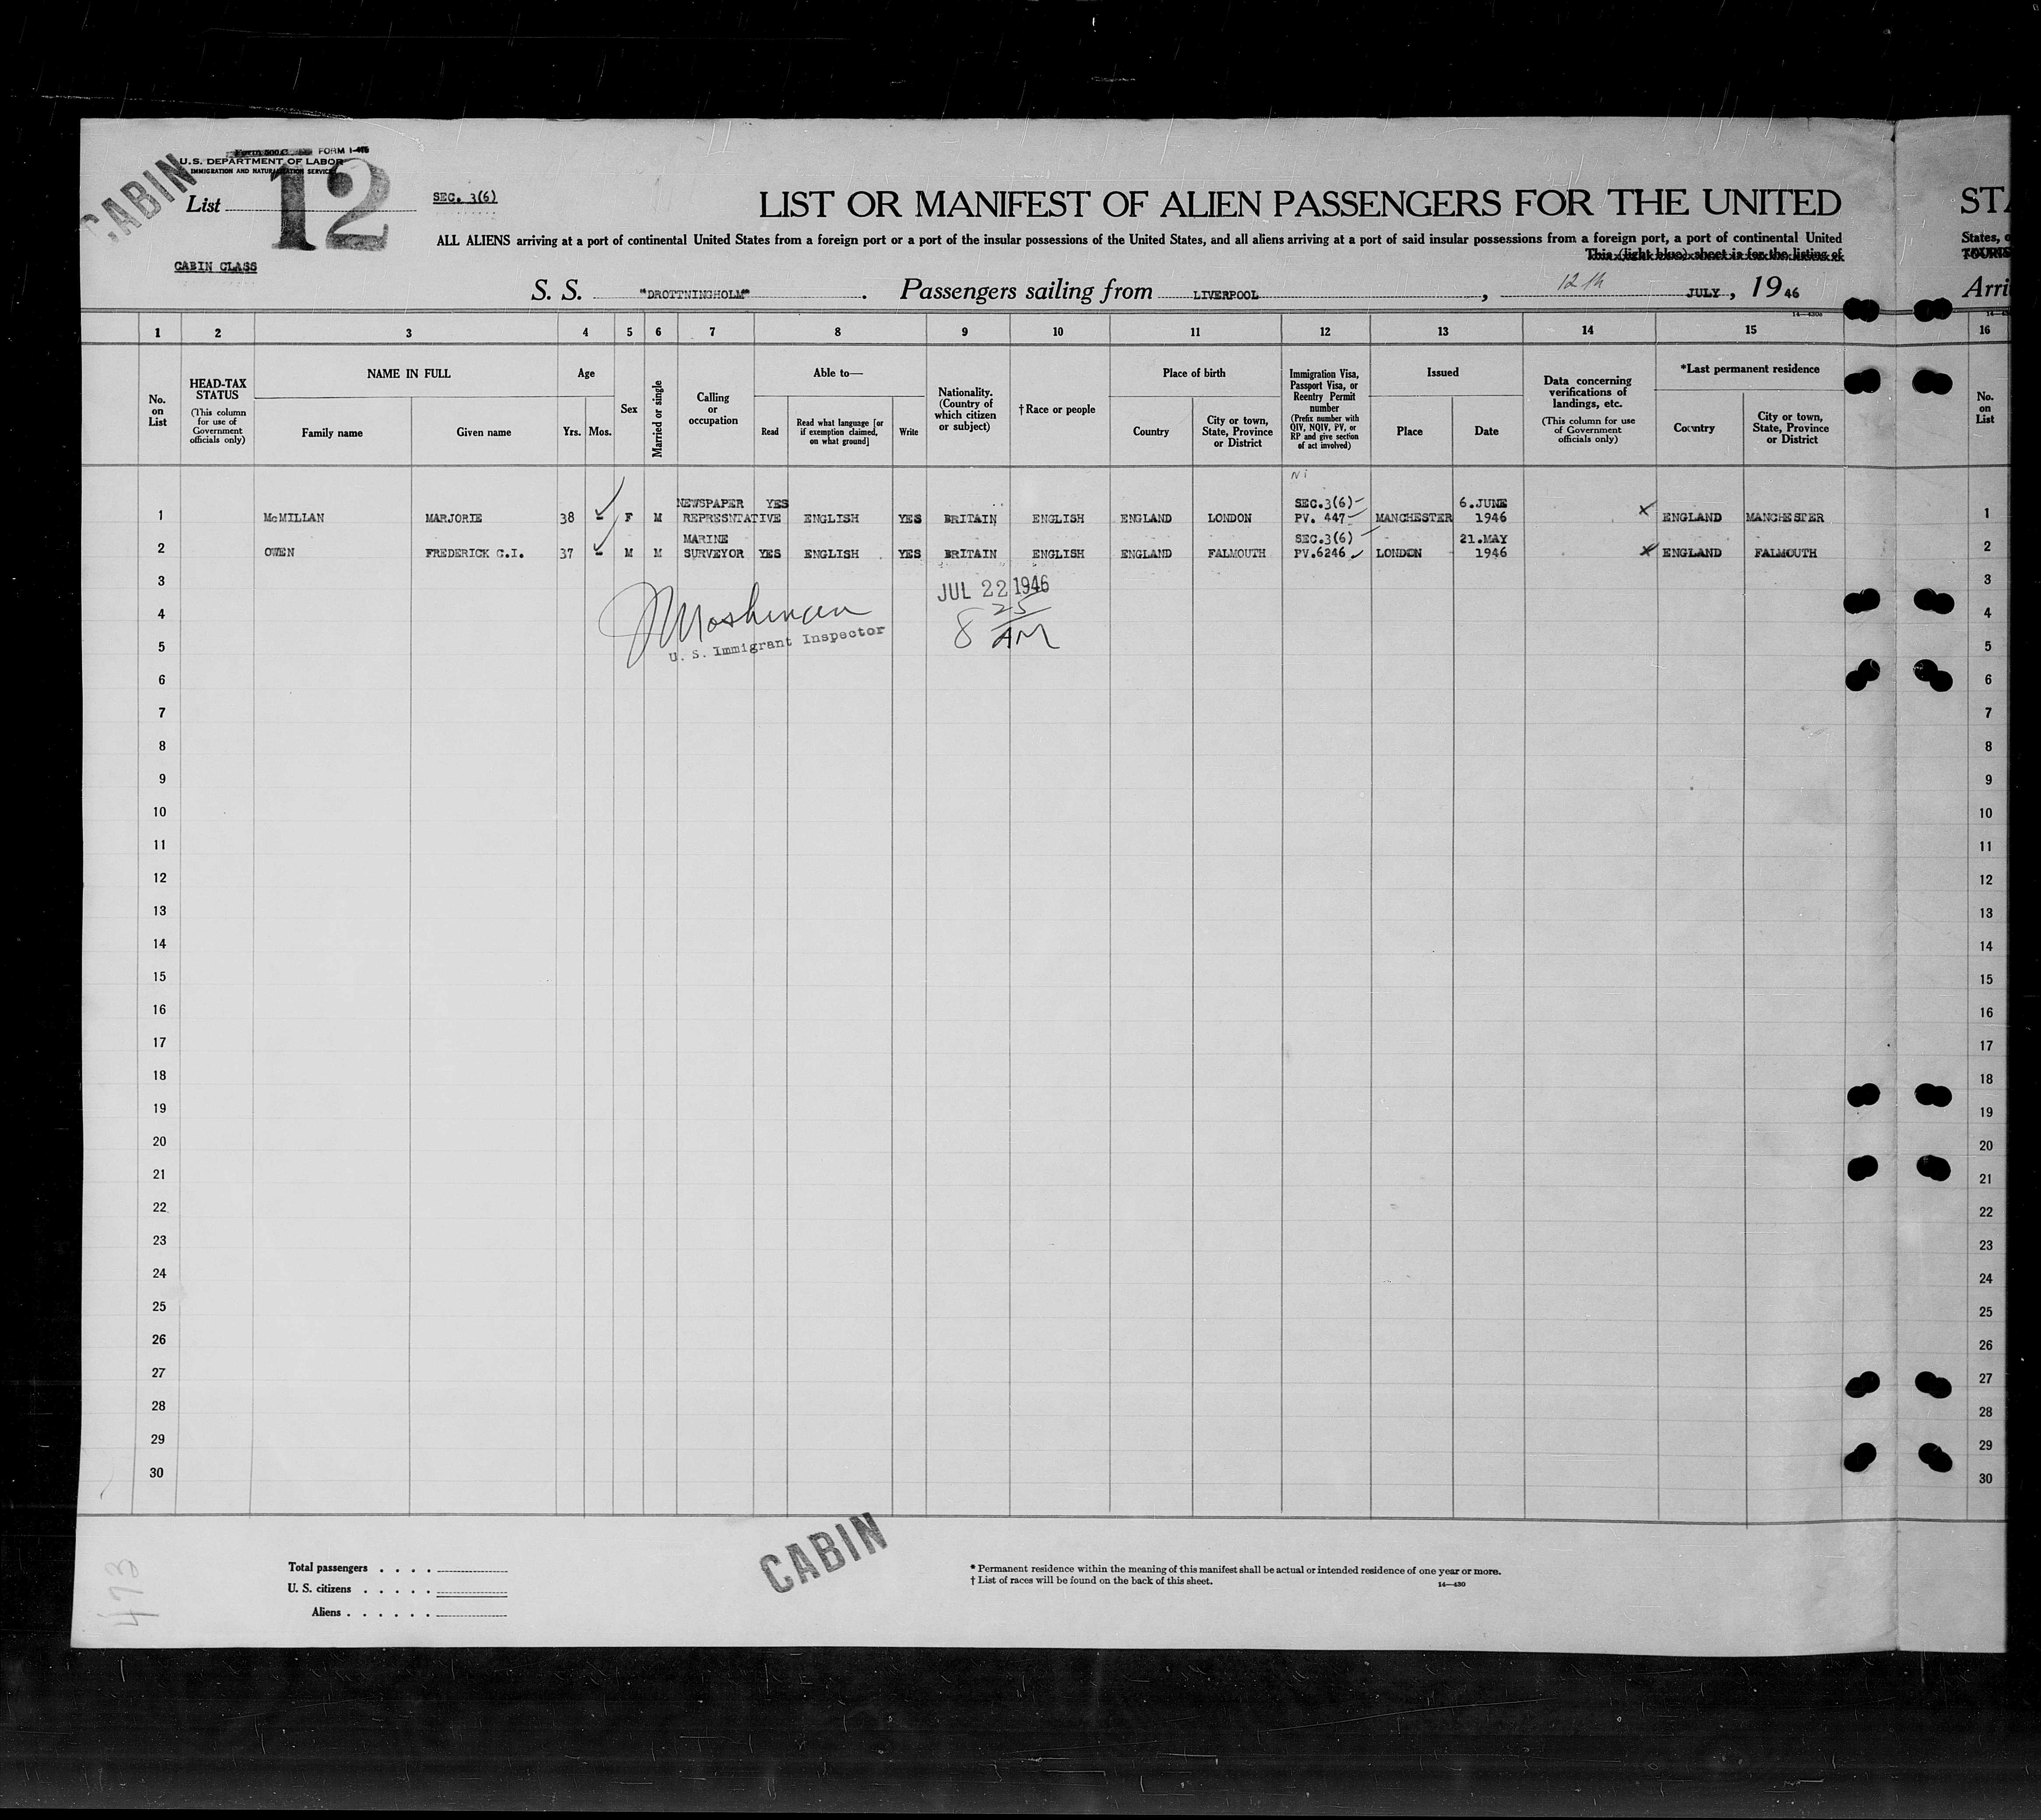 FORM I-415
U.S. DEPARTMENT OF LABOR
IMMIGRATION AND NATURALIZATION SERVICE
CABIN
List 12
SEC. 3(6)
CABIN CLASS
LIST OR MANIFEST OF ALIEN PASSENGERS FOR THE UNITED
ALL ALIENS arriving at a port of continental United States from a foreign port or a port of the insular possessions of the United States, and all aliens arriving at a port of said insular possessions from a foreign port, a port of continental United
This (light blue) sheet is for the listing of
S. S. "DROTTNINGHOLM". Passengers sailing from LIVERPOOL, 12th JULY, 1946
STA
States, o
TOURIS
Arri
1 2 3 4 5 6 7 8 9 10 11 12 13 14 15 16
No. on List
HEAD-TAX STATUS
(This column for use of Government officials only)
NAME IN FULL
Family name
Given name
Age
Yrs. Mos.
Sex
Married or single
Calling or occupation
Able to—
Read
Read what language [or if exemption claimed, on what ground]
Write
Nationality. (Country of which citizen or subject)
† Race or people
Place of birth
Country
City or town, State, Province or District
Immigration Visa, Passport Visa, or Reentry Permit number
(Prefix number with QIV, NQIV, PV, or RP and give section of act involved)
Issued
Place
Date
Data concerning verifications of landings, etc.
(This column for use of Government officials only)
*Last permanent residence
Country
City or town, State, Province or District
No. on List
NEWSPAPER YES SEC.3(6) 6.JUNE
1 McMILLAN MARJORIE 38 - F M REPRESNTATIVE ENGLISH YES BRITAIN ENGLISH ENGLAND LONDON PV. 447 MANCHESTER 1946 x ENGLAND MANCHESTER 1
MARINE SEC.3(6) 21.MAY
2 OWEN FREDERICK C.I. 37 - M M SURVEYOR YES ENGLISH YES BRITAIN ENGLISH ENGLAND FALMOUTH PV.6246 LONDON 1946 x ENGLAND FALMOUTH 2
3 JUL 22 1946 3
4 8 25 AM 4
5 U. S. Immigrant Inspector 5
6 6
7 7
8 8
9 9
10 10
11 11
12 12
13 13
14 14
15 15
16 16
17 17
18 18
19 19
20 20
21 21
22 22
23 23
24 24
25 25
26 26
27 27
28 28
29 29
30 30
CABIN
473
Total passengers . . . .
U. S. citizens . . . . .
Aliens . . . . . .
* Permanent residence within the meaning of this manifest shall be actual or intended residence of one year or more.
† List of races will be found on the back of this sheet.
14—430